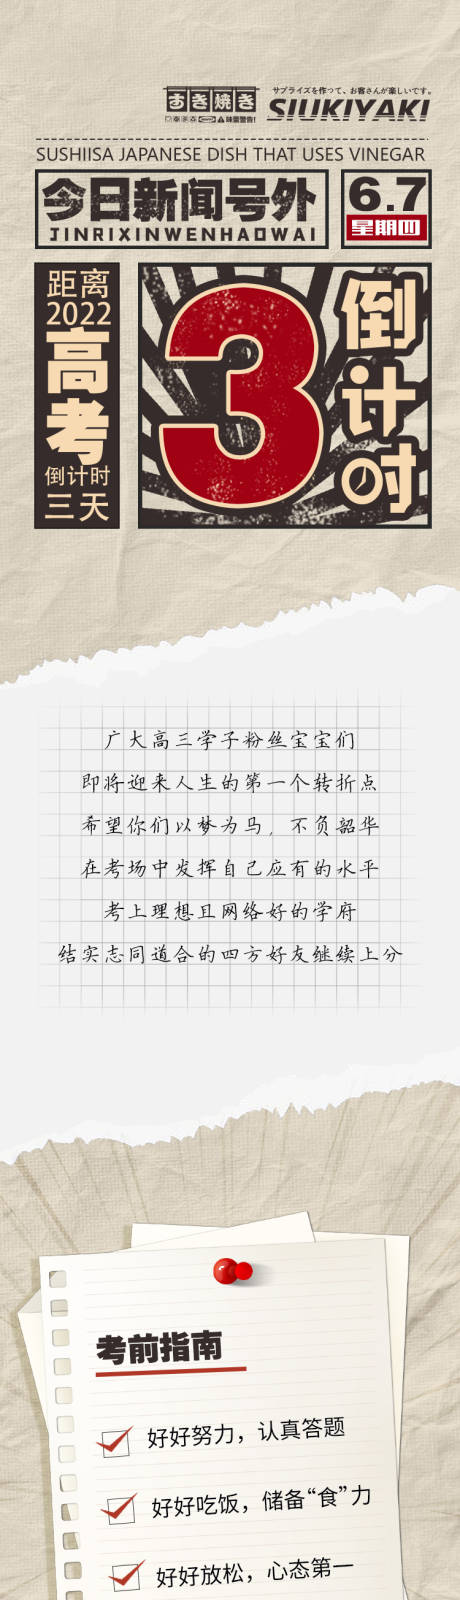 すき焼き
味重警告!
サプライズを作って、お客さんが楽しいです。
SIUKIYAKI
SUSHIISA JAPANESE DISH THAT USES VINEGAR
今日新闻号外
JINRIXINWENHAOWAI
6.7
星期四
距离
2022
高考
倒计时
三天
3
倒计时
广大高三学子粉丝宝宝们
即将迎来人生的第一个转折点
希望你们以梦为马，不负韶华
在考场中发挥自己应有的水平
考上理想且网络好的学府
结实志同道合的四方好友继续上分
考前指南
好好努力，认真答题
好好吃饭，储备“食”力
好好放松，心态第一